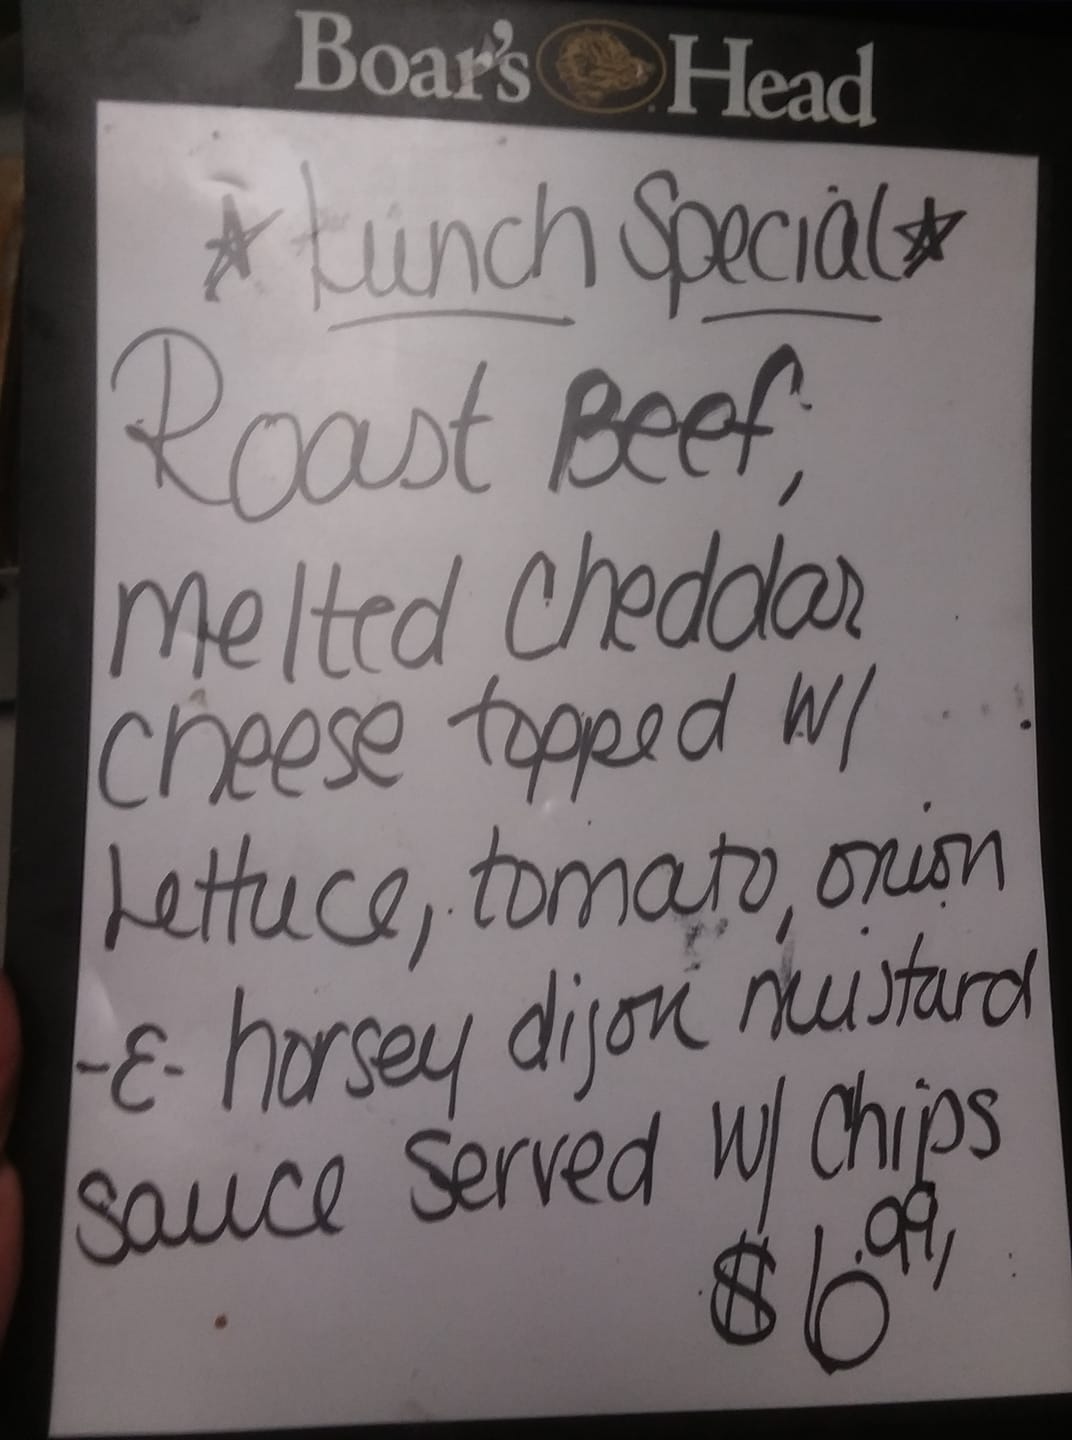 Boar's Head
☆ Lunch Special ☆
Roast Beef,
melted cheddar
cheese topped w/
Lettuce, tomato, onion
-&- horsey dijon mustard
sauce served w/ chips
$6.99,